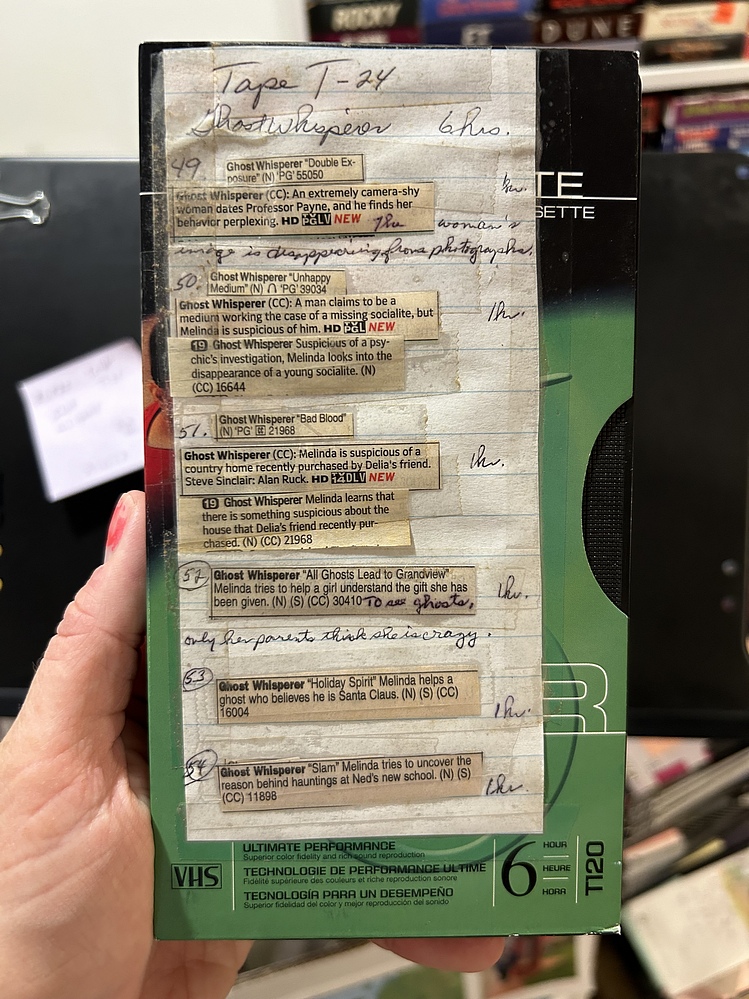 ROCKY
ET
DUNE
Tape T-24
GhostWhisperer 6 hrs.
TE
SETTE
49. Ghost Whisperer "Double Ex-
posure" (N) 'PG' 55050
1hr.
Ghost Whisperer (CC): An extremely camera-shy
woman dates Professor Payne, and he finds her
behavior perplexing. HD PGLV NEW The woman's
image is disappearing from photographs.
50. Ghost Whisperer "Unhappy
Medium" (N) 'PG' 39034
Ghost Whisperer (CC): A man claims to be a
medium working the case of a missing socialite, but
Melinda is suspicious of him. HD PGL NEW
1hr.
19 Ghost Whisperer Suspicious of a psy-
chic's investigation, Melinda looks into the
disappearance of a young socialite. (N)
(CC) 16644
51. Ghost Whisperer "Bad Blood"
(N) 'PG' 21968
Ghost Whisperer (CC): Melinda is suspicious of a
country home recently purchased by Delia's friend.
Steve Sinclair: Alan Ruck. HD 14DLV NEW
1hr.
19 Ghost Whisperer Melinda learns that
there is something suspicious about the
house that Delia's friend recently pur-
chased. (N) (CC) 21968
52 Ghost Whisperer "All Ghosts Lead to Grandview"
Melinda tries to help a girl understand the gift she has
been given. (N) (S) (CC) 30410 To see ghosts,
1hr.
only her parents think she is crazy.
53 Ghost Whisperer "Holiday Spirit" Melinda helps a
ghost who believes he is Santa Claus. (N) (S) (CC)
16004
1hr.
54 Ghost Whisperer "Slam" Melinda tries to uncover the
reason behind hauntings at Ned's new school. (N) (S)
(CC) 11898
1hr.
VHS
ULTIMATE PERFORMANCE
Superior color fidelity and rich sound reproduction
TECHNOLOGIE DE PERFORMANCE ULTIME
Fidelité supérieure des couleurs et riche reproduction sonore
TECNOLOGÍA PARA UN DESEMPEÑO
Superior fidelidad del color y mejor reproducción del sonido
6 HOUR
HEURE
HORA
T120